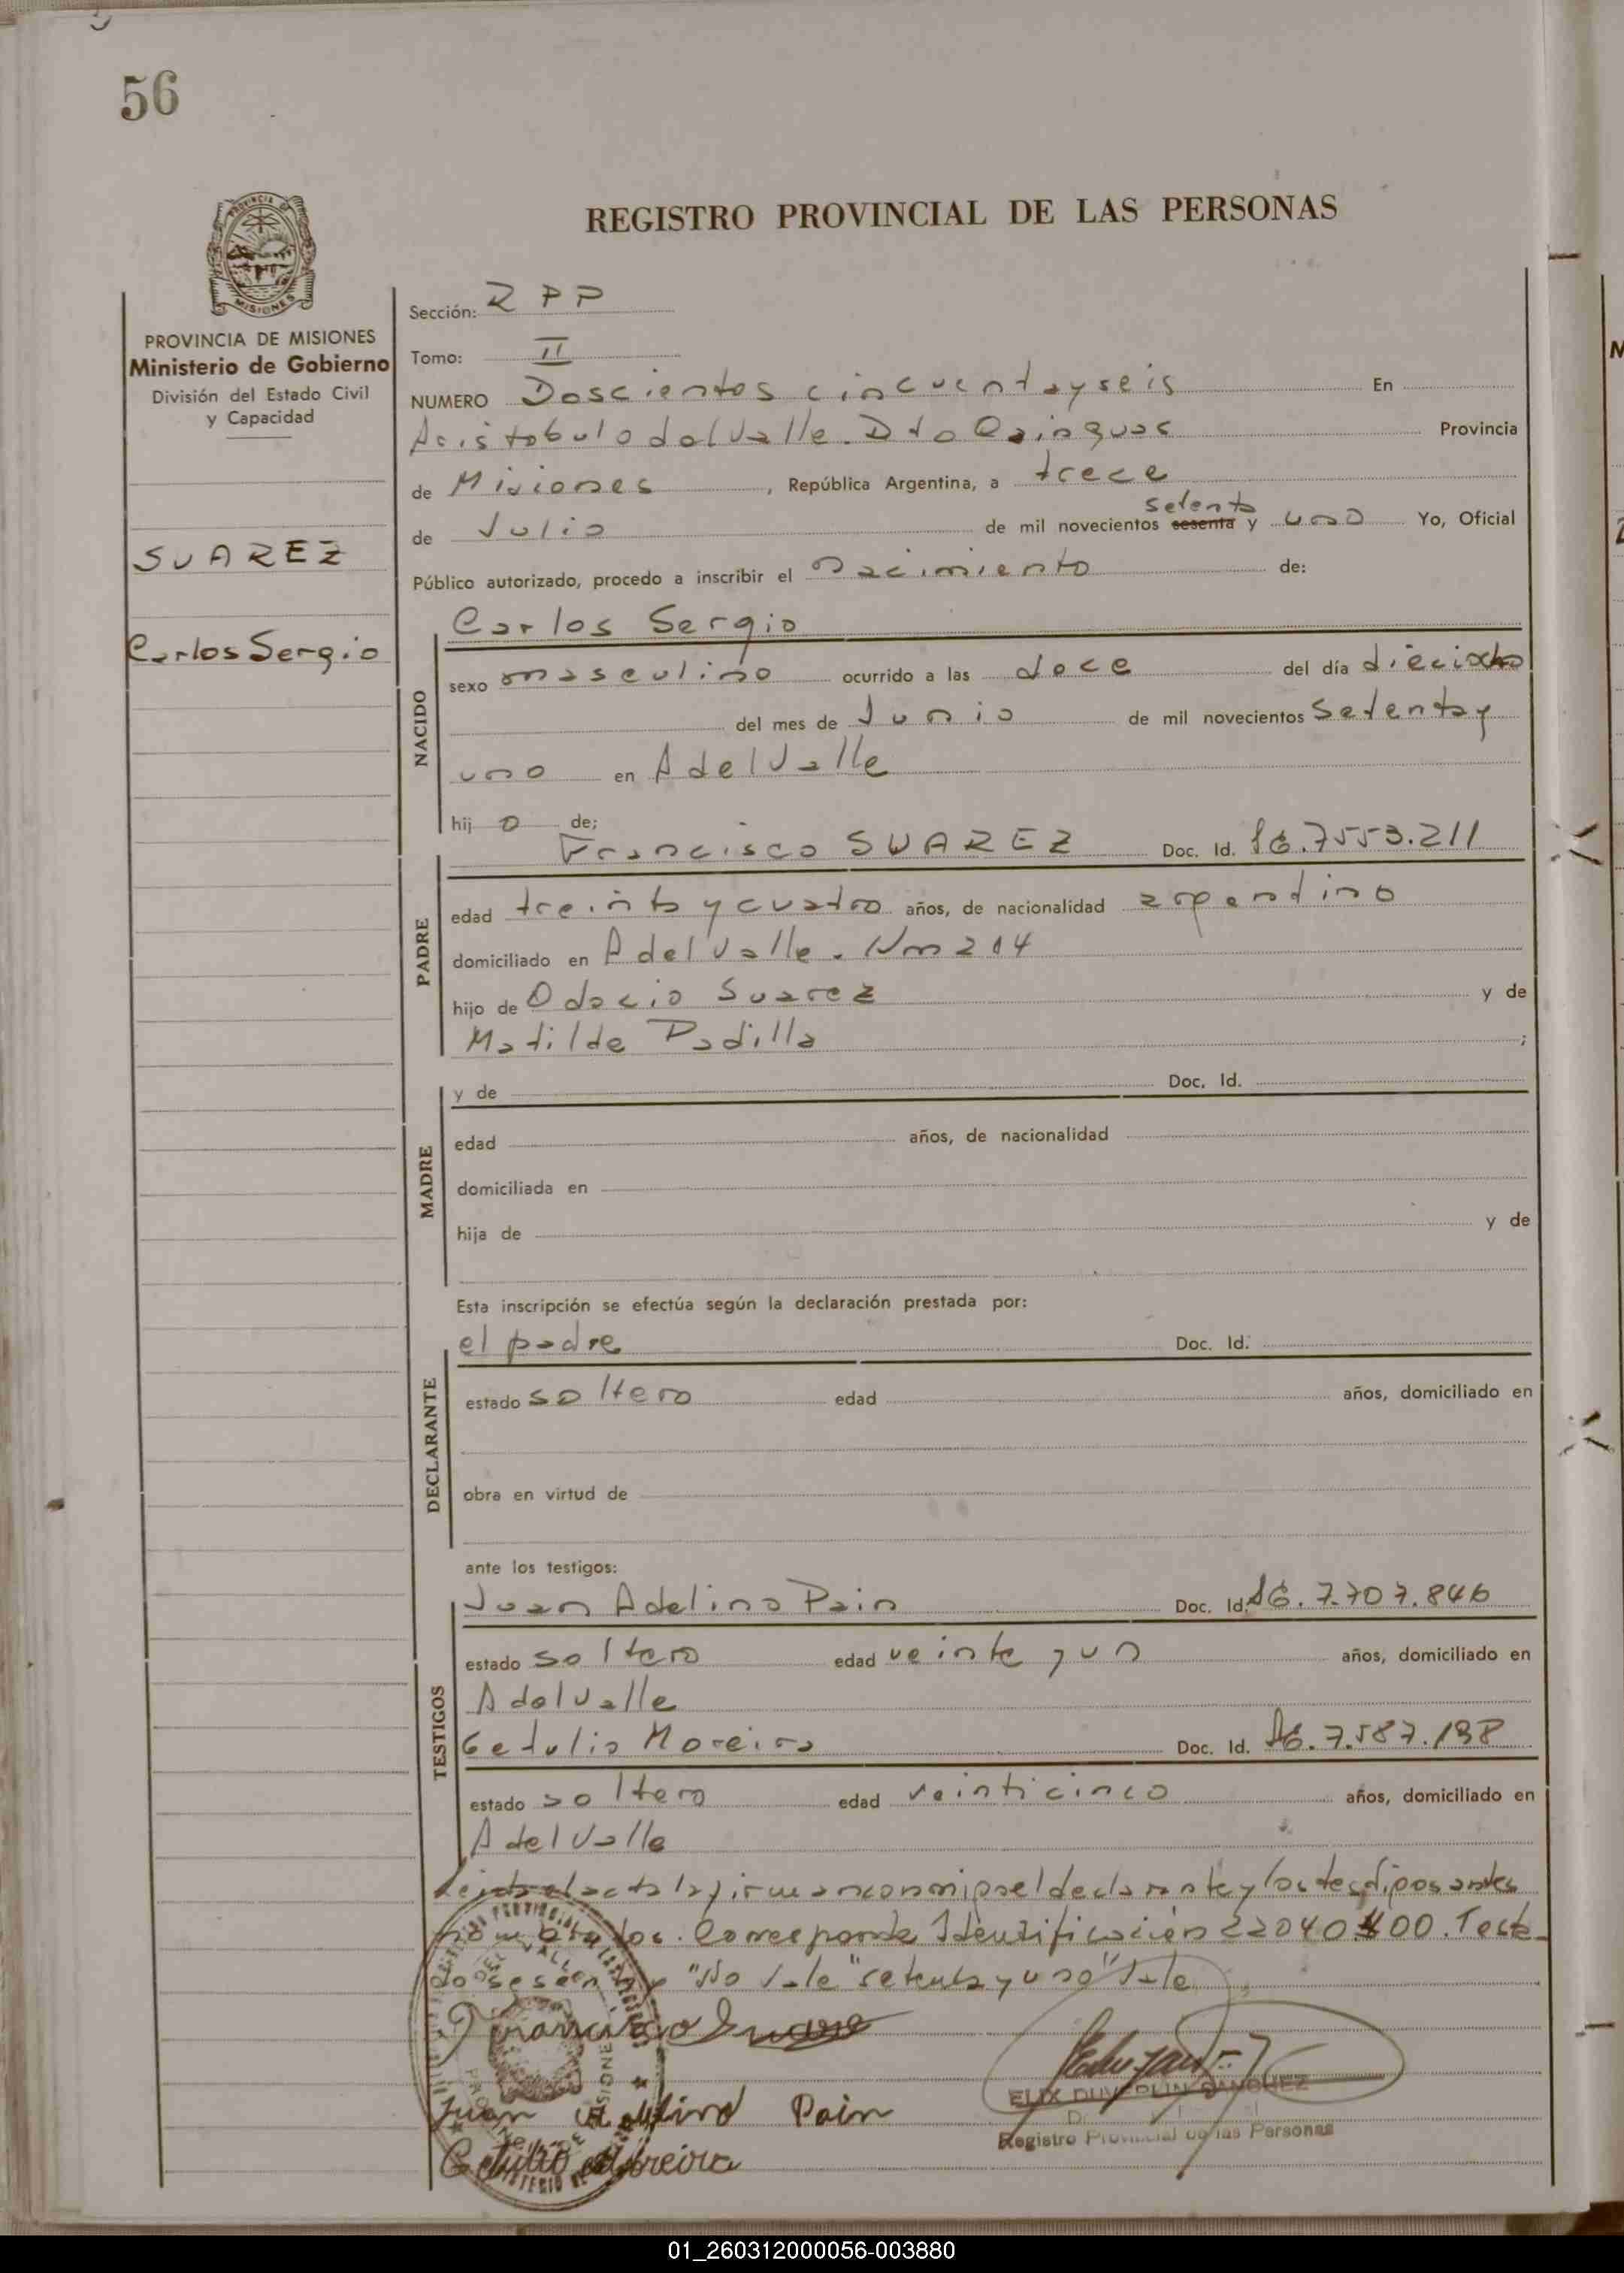 56
REGISTRO PROVINCIAL DE LAS PERSONAS
PROVINCIA DE MISIONES
Ministerio de Gobierno
División del Estado Civil
y Capacidad
SUAREZ
Carlos Sergio
Sección: RPP
Tomo: II
NUMERO Doscientos cincuenta y seis En
Aristobulo del Valle. Dto Cainguas Provincia
de Misiones, República Argentina, a trece
setenta
de Julio de mil novecientos sesenta y uno Yo, Oficial
Público autorizado, procedo a inscribir el nacimiento de:
NACIDO
Carlos Sergio
sexo masculino ocurrido a las doce del día dieciocho
del mes de Junio de mil novecientos setenta y
uno en A del Valle
hijo de;
PADRE
Francisco SUAREZ Doc. Id. 16.7553.211
edad treinta y cuatro años, de nacionalidad argentino
domiciliado en A del Valle. Km 214
hijo de Odacio Suarez y de
Matilde Padilla ;
MADRE
y de Doc. Id.
edad años, de nacionalidad
domiciliada en
hija de y de
Esta inscripción se efectúa según la declaración prestada por:
DECLARANTE
el padre Doc. Id.
estado soltero edad años, domiciliado en
obra en virtud de
ante los testigos:
TESTIGOS
Juan Adelino Pain Doc. Id. 16.7.707.846
estado soltero edad veinte y un años, domiciliado en
A del Valle
Getulio Moreira Doc. Id. 16.7.587.138
estado soltero edad veinticinco años, domiciliado en
A del Valle
Leida el acta la firman conmigo el declarante y los testigos antes
nombrados. Corresponde Identificación 22040.400. Testa
do sesenta y "No Vale" setenta y uno" Vale
Francisco Suarez
Juan Adelino Pain
Getulio Moreira
Registro Provincial de las Personas
01_260312000056-003880